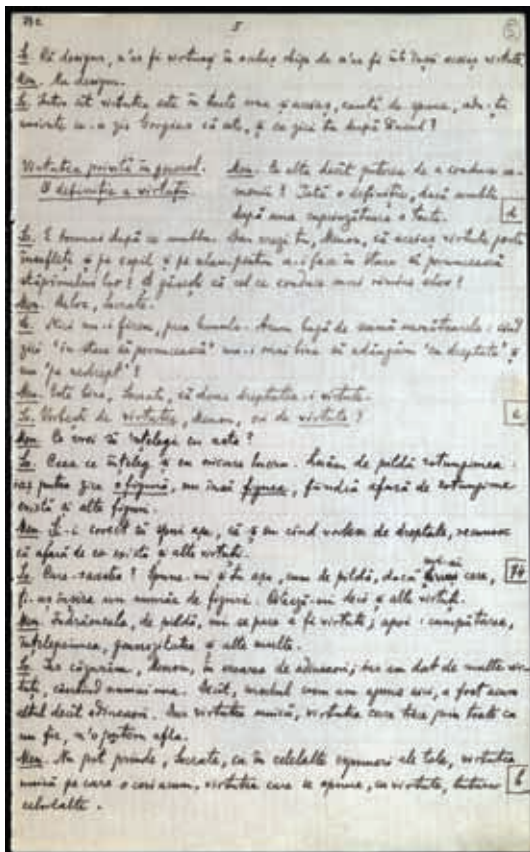 73 c
5
So. Că desigur, n'ar fi virtuoși în același chip de n'ar fi într'înșii aceeaș virtute.
Men. Nu desigur.
So. Intru cât virtutea este în toate una și aceeaș, caută de spune, adu-ți
aminte ce-a zis Gorgias că este, și ce zici tu după Dînsul?
Virtutea privită în general.
O definiție a virtuții.
Men. Ce alta decît puterea de a conduce oa-
menii? Iată o definiție, dacă umbli
după una cuprinzătoare a toate.
d
So. E tocmai după ce umblu. Dar crezi tu, Menon, că aceeaș virtute poate
însufleți și pe copil și pe sclav, pentru a-i face în stare să poruncească
stăpînului lor? Și găsești că cel ce conduce mai rămîne sclav?
Men. Deloc, Socrate.
So. Nici nu-i firesc, prea bunule. Acum bagă de seamă următoarele: cînd
zici 'în stare să poruncească' nu-i mai bine să adăugăm 'cu dreptate' și
nu 'pe nedrept'?
Men. Este bine, Socrate, că doar dreptatea-i virtute.
So. Vorbești de virtutea, Menon, ori de o virtute?
e
Men. Ce vrei să înțelegi cu asta?
So. Ceea ce înțeleg și cu oricare lucru. Luăm de pildă rotunjimea.
aș putea zice o figură, nu însă figura, fiindcă afară de rotunjime
există și alte figuri.
Men. Și-i corect că spui așa, că și eu cînd vorbesc de dreptate, recunosc
că afară de ea există și alte virtuți.
So. Care-s acestea? Spune-mi și tu așa, cum de pildă, dacă mi-ai cere,
74
ți-aș înșira un număr de figuri. Citează-mi deci și alte virtuți.
Men. Îndrăzneala, de pildă, mi se pare a fi virtute; apoi: cumpătarea,
înțelepciunea, generozitatea și alte multe.
So. Ne căznirăm, Menon, în vremea de adineaori; iar am dat de multe vir-
tuți, căutînd numai una. Decît, modul cum am ajuns aici, a fost acum
altul decît adineaori. Dar virtutea unică, virtutea care trece prin toate ca
un fir, n'o putem afla.
Men. Nu pot prinde, Socrate, ca în celelalte expuneri ale tale, virtutea
unică pe care o ceri acum, virtutea care se opune, ca virtute, tuturor
b
celorlalte.